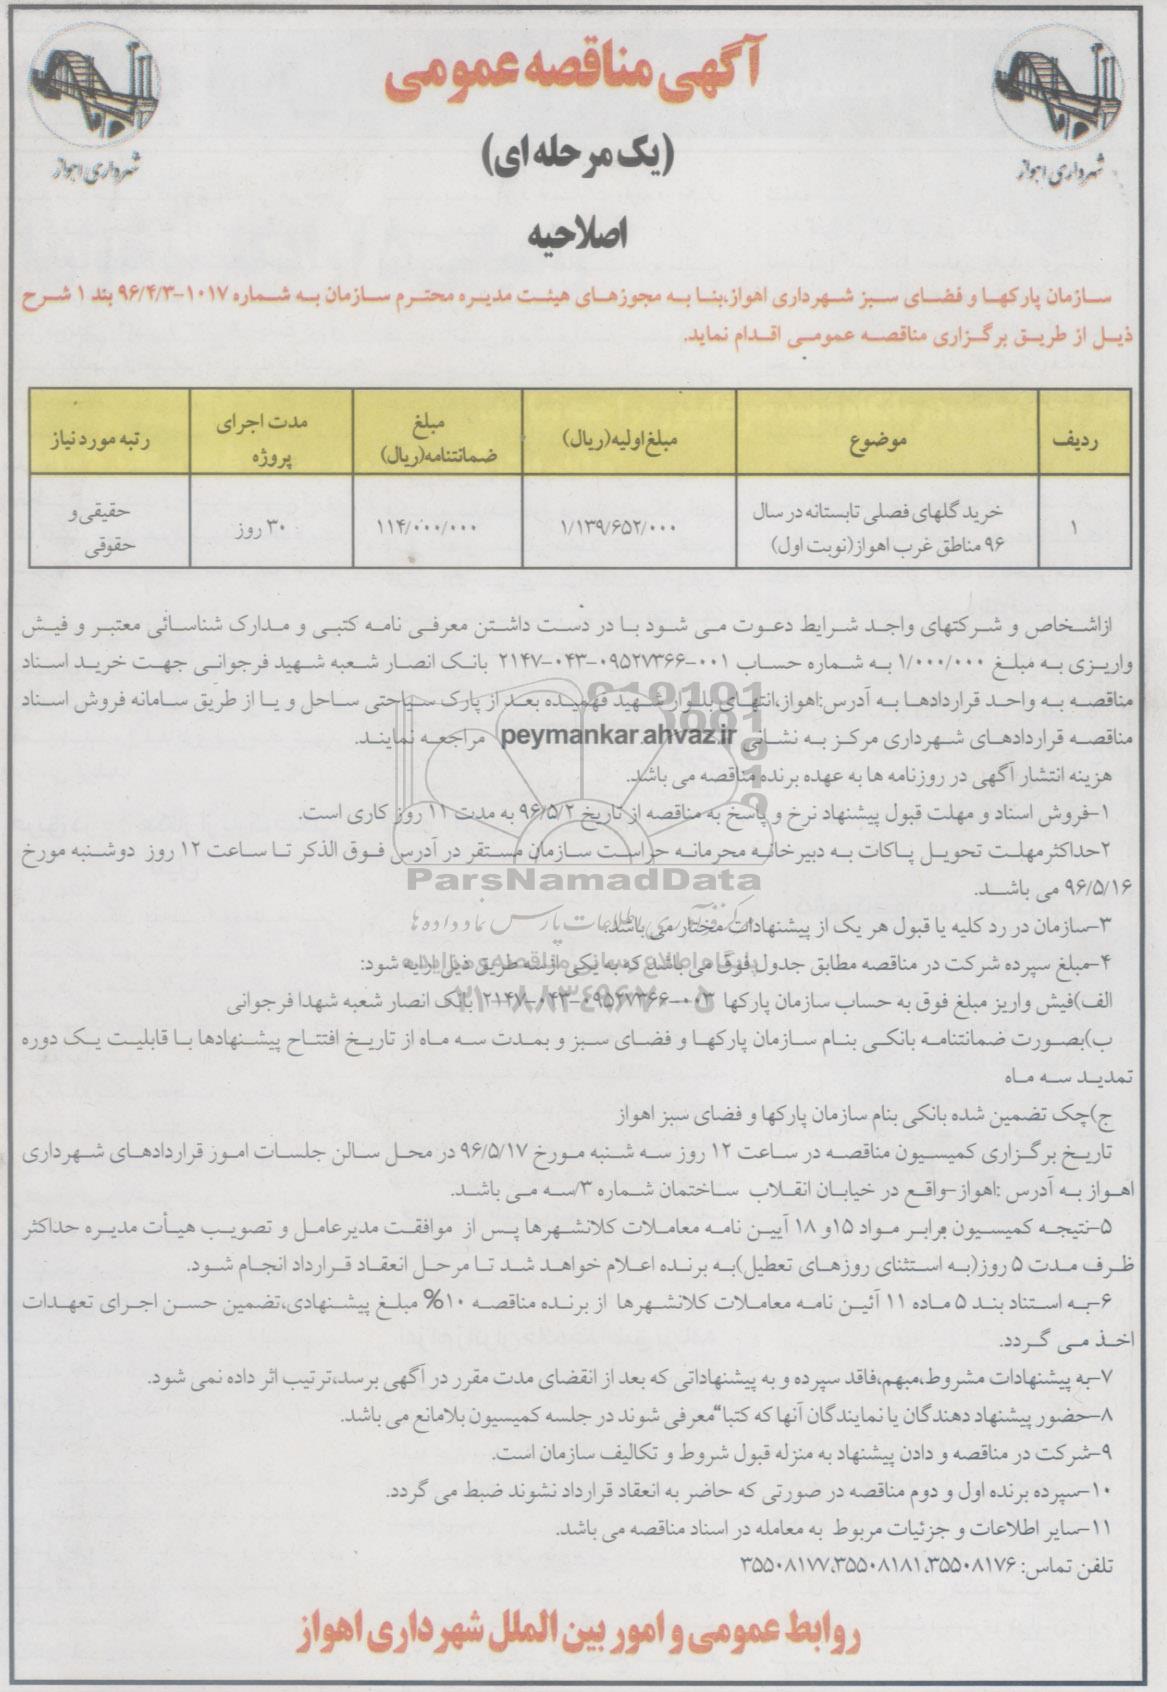 آگهی مناقصه عمومی
(یک مرحله ای)
اصلاحیه
شهرداری اهواز
شهرداری اهواز
سازمان پارکها و فضای سبز شهرداری اهواز،بنا به مجوزهای هیئت مدیره محترم سازمان به شماره ۱۰۱۷-۹۶/۴/۳ بند ۱ شرح
ذیل از طریق برگزاری مناقصه عمومی اقدام نماید.
ردیف
موضوع
مبلغ اولیه(ریال)
مبلغ
ضمانتنامه(ریال)
مدت اجرای
پروژه
رتبه مورد نیاز
۱
خرید گلهای فصلی تابستانه در سال
۹۶ مناطق غرب اهواز(نوبت اول)
۱/۱۳۹/۶۵۲/۰۰۰
۱۱۴/۰۰۰/۰۰۰
۳۰ روز
حقیقی و
حقوقی
ازاشخاص و شرکتهای واجد شرایط دعوت می شود با در دست داشتن معرفی نامه کتبی و مدارک شناسائی معتبر و فیش
واریزی به مبلغ ۱/۰۰۰/۰۰۰ به شماره حساب ۰۰۱-۰۹۵۲۷۳۶۶-۰۴۳-۲۱۴۷ بانک انصار شعبه شهید فرجوانی جهت خرید اسناد
مناقصه به واحد قراردادها به آدرس:اهواز،انتهای بلوار شهید فهمیده بعد از پارک سیاحتی ساحل و یا از طریق سامانه فروش اسناد
مناقصه قراردادهای شهرداری مرکز به نشانی peymankar.ahvaz.ir مراجعه نمایند.
هزینه انتشار آگهی در روزنامه ها به عهده برنده مناقصه می باشد.
۱-فروش اسناد و مهلت قبول پیشنهاد نرخ و پاسخ به مناقصه از تاریخ ۹۶/۵/۲ به مدت ۱۱ روز کاری است.
۲-حداکثرمهلت تحویل پاکات به دبیرخانه محرمانه حراست سازمان مستقر در آدرس فوق الذکر تا ساعت ۱۲ روز دوشنبه مورخ
۹۶/۵/۱۶ می باشد.
ParsNamadData
مرکز فرآوری اطلاعات پارس نماد داده ها
۳-سازمان در رد کلیه یا قبول هر یک از پیشنهادات مختار می باشد.
۴-مبلغ سپرده شرکت در مناقصه مطابق جدول فوق می باشد که به یکی از سه طریق ذیل ارایه شود:
الف)فیش واریز مبلغ فوق به حساب سازمان پارکها ۰۰۳-۰۹۵۲۷۳۶۶-۰۴۳-۲۱۴۷ بانک انصار شعبه شهدا فرجوانی
ب)بصورت ضمانتنامه بانکی بنام سازمان پارکها و فضای سبز و بمدت سه ماه از تاریخ افتتاح پیشنهادها با قابلیت یک دوره
تمدید سه ماه
ج)چک تضمین شده بانکی بنام سازمان پارکها و فضای سبز اهواز
تاریخ برگزاری کمیسیون مناقصه در ساعت ۱۲ روز سه شنبه مورخ ۹۶/۵/۱۷ در محل سالن جلسات امور قراردادهای شهرداری
اهواز به آدرس :اهواز-واقع در خیابان انقلاب ساختمان شماره ۳/سه می باشد.
۵-نتیجه کمیسیون برابر مواد ۱۵و ۱۸ آیین نامه معاملات کلانشهرها پس از موافقت مدیرعامل و تصویب هیأت مدیره حداکثر
ظرف مدت ۵ روز(به استثنای روزهای تعطیل)به برنده اعلام خواهد شد تا مرحل انعقاد قرارداد انجام شود.
۶-به استناد بند ۵ ماده ۱۱ آئین نامه معاملات کلانشهرها از برنده مناقصه ۱۰% مبلغ پیشنهادی،تضمین حسن اجرای تعهدات
اخذ می گردد.
۷-به پیشنهادات مشروط،مبهم،فاقد سپرده و به پیشنهاداتی که بعد از انقضای مدت مقرر در آگهی برسد،ترتیب اثر داده نمی شود.
۸-حضور پیشنهاد دهندگان یا نمایندگان آنها که کتبا“معرفی شوند در جلسه کمیسیون بلامانع می باشد.
۹-شرکت در مناقصه و دادن پیشنهاد به منزله قبول شروط و تکالیف سازمان است.
۱۰-سپرده برنده اول و دوم مناقصه در صورتی که حاضر به انعقاد قرارداد نشوند ضبط می گردد.
۱۱-سایر اطلاعات و جزئیات مربوط به معامله در اسناد مناقصه می باشد.
تلفن تماس: ۳۵۵۰۸۱۷۶،۳۵۵۰۸۱۸۱،۳۵۵۰۸۱۷۷
روابط عمومی و امور بین الملل شهرداری اهواز